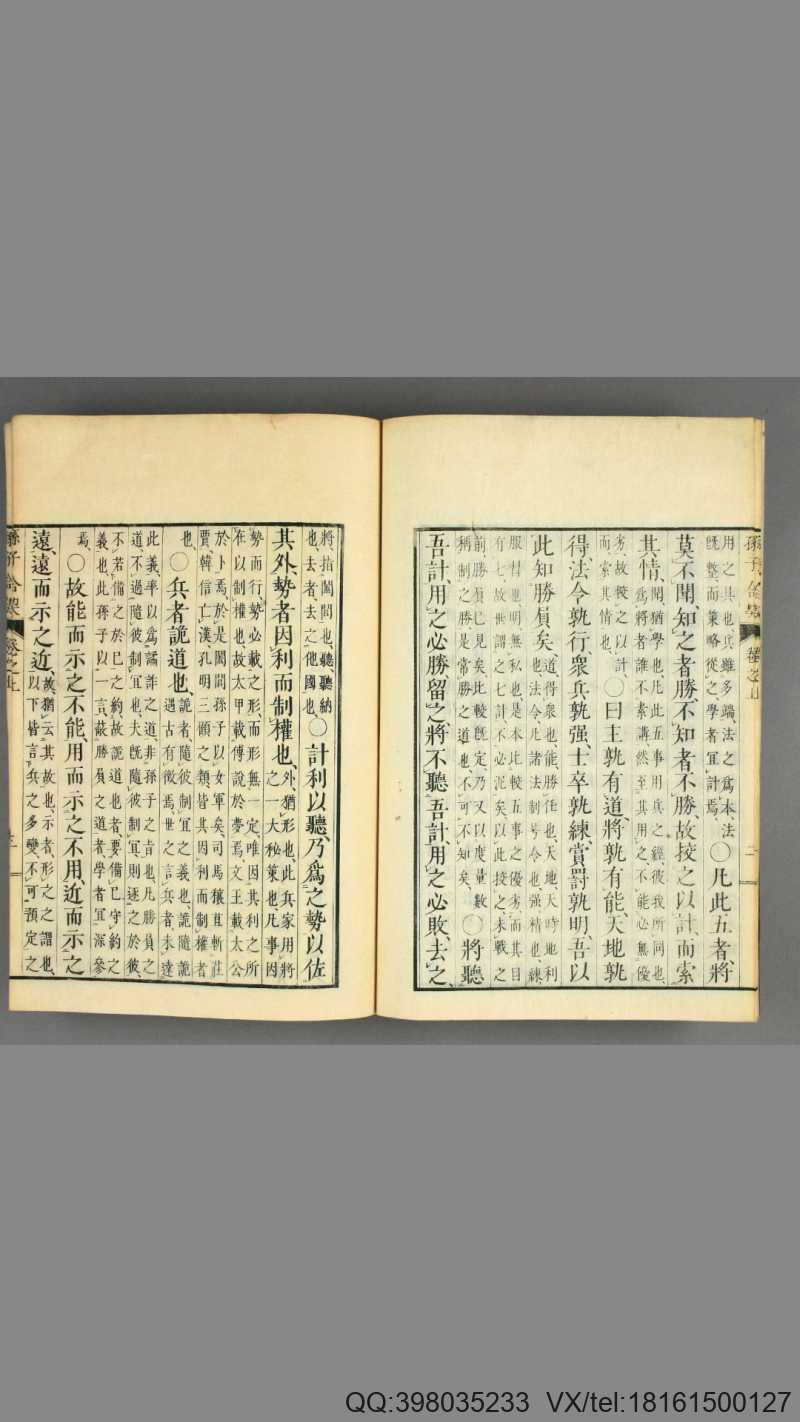 用之具也、兵雖多端、法之爲本、法
既整、而策略從之、學者宜計焉、
〇凡此五者、將
莫不聞、知之者勝、不知者不勝、故挍之以計、而索
其情、
聞、猶學也、凡此五事、用兵之經、彼我所同也、
爲將者、誰不素講、然至其用之、不能必無優
劣、故挍之以計、
而索其情也、
〇曰主孰有道、將孰有能、天地孰
得、法令孰行、衆兵孰强、士卒孰練、賞罰孰明、吾以
此知勝負矣、
道、得衆也、能、勝任也、天地、天時地利
也、法令、凡諸法制号令也、强、精也、練、
服習也、明、無私也、是本比較五事之優劣、而其目
有七、故世謂之七計、不必泥矣、以此挍之、未戰之
前、勝負已見矣、此較旣定、乃又以度量數
稱、制之勝、是常勝之道也、不可不知矣、
〇將聽
吾計、用之必勝、留之、將不聽吾計、用之必敗、去之、
將、指闔閭也、聽、聽納
也、去者、去之他國也、
〇計利以聽、乃爲之勢、以佐
其外、勢者因利而制權也、
外、猶形也、此兵家用將
之一大秘策也、凡事因
勢而行、勢必載之形、而形無一定、唯因其利之所
在、以制權也、故太甲載傳說於夢焉、文王載太公
於卜焉、於是闔閭孫子以女軍矣、司馬穰苴斬莊
賈、韓信亡漢、孔明三顧之類、皆其因利而制權者
也、
〇兵者詭道也、
詭者、隨彼制宜之義也、詭隨詭
遇、古有徵焉、世之言兵者、未達
此義、率以爲譎詐之道、非孫子之旨也、凡勝負之
道、不過隨彼制宜也、夫旣隨彼制宜、則逐之於彼、
不若備之於已之約、故詭道也者、要備已守約之
義也、此孫子以一言蔽勝負之道者、學者宜深參
焉、
〇故能而示之不能、用而示之不用、近而示之
遠、遠而示之近、
故、猶云其故也、示者、形之謂也、
以下皆言兵之多變、不可預定之
QQ:398035233 VX/tel:18161500127